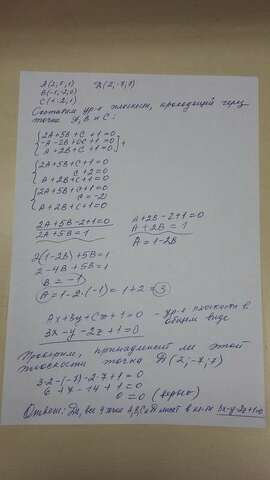 A(2; 5; 1) D(2; -7; 7)
B(-1; -2; 0)
C(1; 2; 1)
Составим ур-е плоскости, проходящей через
точки A, B и C:
{2A+5B+C+1=0
-A-2B+0C+1=0 +
A+2B+C+1=0
{2A+5B+C+1=0
C+2=0
A+2B+C+1=0
{2A+5B+C+1=0
C=-2
A+2B+C+1=0
2A+5B-2+1=0 A+2B-2+1=0
2A+5B=1 A+2B=1
A=1-2B
2(1-2B)+5B=1
2-4B+5B=1
B=-1
A=1-2·(-1)=1+2=3
Ax+By+Cz+1=0 - ур-е плоскости в
3x-y-2z+1=0 общем виде
Проверим, принадлежит ли этой
плоскости точка D(2; -7; 7)
3·2-(-7)-2·7+1=0
6+7-14+1=0
0=0 (верно)
Ответ: Да, все 4 точки A, B, C и D лежат в пл-ти 3x-y-2z+1=0